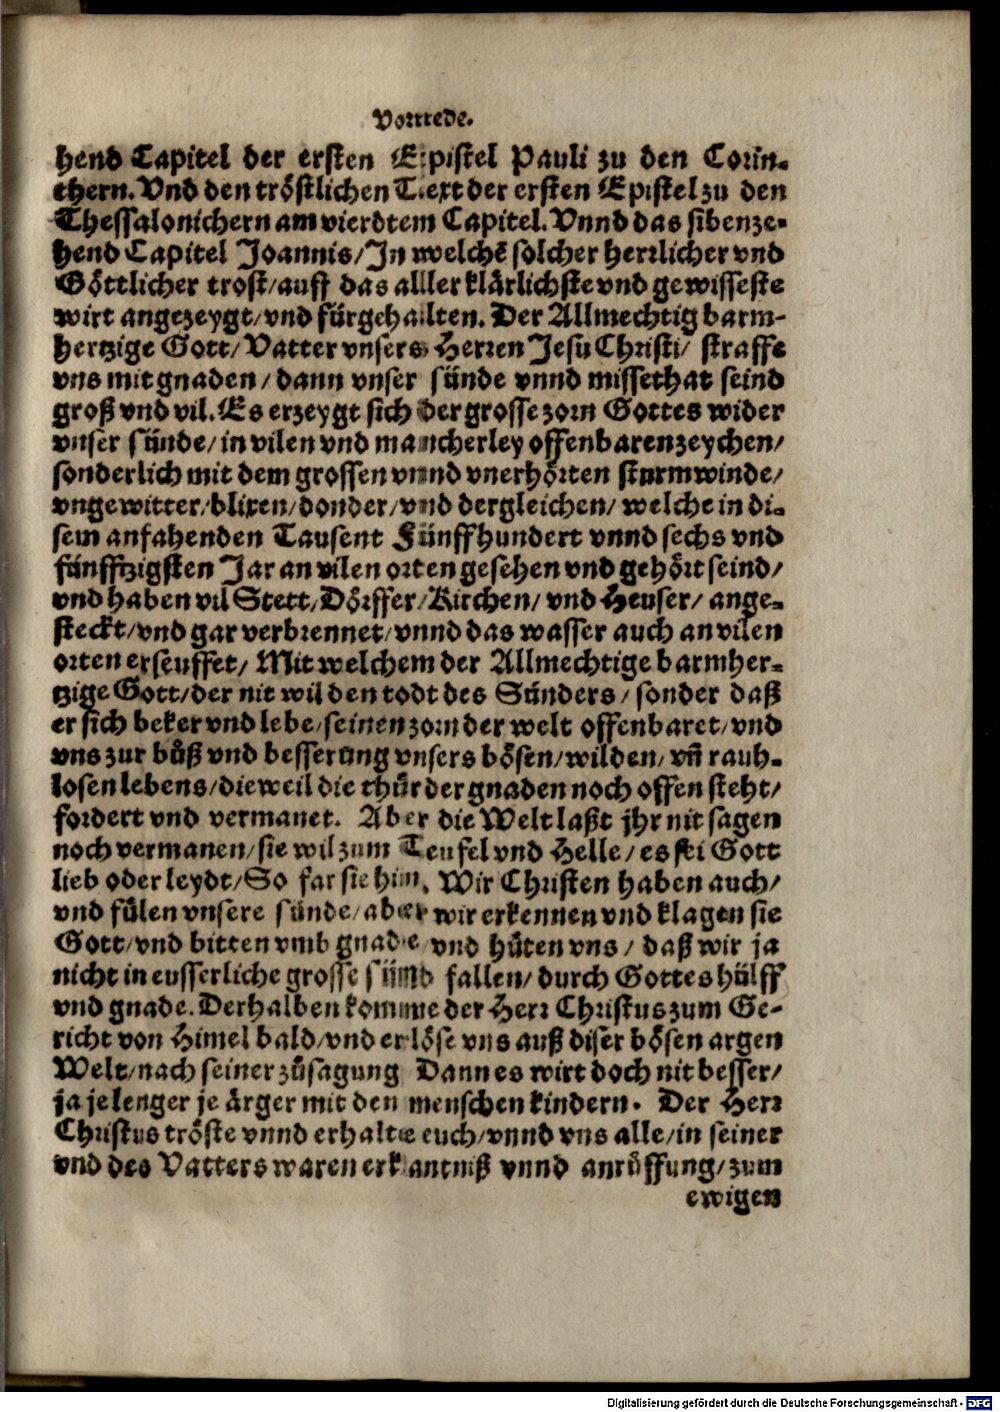 Vorrede.
hend Capitel der ersten Epistel Pauli zu den Corin-
thern. Vnd den tröstlichen Text der ersten Epistel zu den
Thessalonichern am vierdtem Capitel. Vnnd das sibenze-
hend Capitel Joannis/ In welchē solcher herrlicher vnd
Göttlicher trost/ auff das aller klärlichste vnd gewisseste
wirt angezeygt/ vnd fürgehalten. Der Allmechtig barm-
hertzige Gott/ Vatter vnsers Herren Jesu Christi/ straffe
vns mit gnaden/ dann vnser sünde vnnd missethat seind
groß vnd vil. Es erzeygt sich der grosse zorn Gottes wider
vnser sünde/ in vilen vnd mancherley offenbaren zeychen/
sonderlich mit dem grossen vnnd vnerhörten sturmwinde/
vngewitter/ blixen/ donder/ vnd dergleichen/ welche in di-
sem anfahenden Tausent Fünffhundert vnnd sechs vnd
fünfftzigsten Jar an vilen orten gesehen vnd gehört seind/
vnd haben vil Stett/ Dörffer/ Kirchen/ vnd Heuser/ ange-
steckt/ vnd gar verbrennet/ vnnd das wasser auch an vilen
orten erseuffet/ Mit welchem der Allmechtige barmher-
tzige Gott/ der nit wil den todt des Sünders/ sonder daß
er sich beker vnd lebe/ seinen zorn der welt offenbaret/ vnd
vns zur bůß vnd besserung vnsers bösen/ wilden/ vñ rauh-
losen lebens/ dieweil die thür der gnaden noch offen steht/
fordert vnd vermanet. Aber die Welt laßt jhr nit sagen
noch vermanen/ sie wil zum Teufel vnd Helle/ es sei Gott
lieb oder leydt/ So far sie hin. Wir Christen haben auch/
vnd fülen vnsere sünde/ aber wir erkennen vnd klagen sie
Gott/ vnd bitten vmb gnade/ vnd hüten vns/ daß wir ja
nicht in eusserliche grosse sünd fallen/ durch Gottes hülff
vnd gnade. Derhalben komme der Herr Christus zum Ge-
richt von Himel bald/ vnd erlöse vns auß diser bösen argen
Welt/ nach seiner zůsagung Dann es wirt doch nit besser/
ja je lenger je ärger mit den menschen kindern. Der Herr
Christus tröste vnnd erhalte euch/ vnnd vns alle/ in seiner
vnd des Vatters waren erkantniß vnnd anrůffung/ zum
ewigen
Digitalisierung gefördert durch die Deutsche Forschungsgemeinschaft - DFG